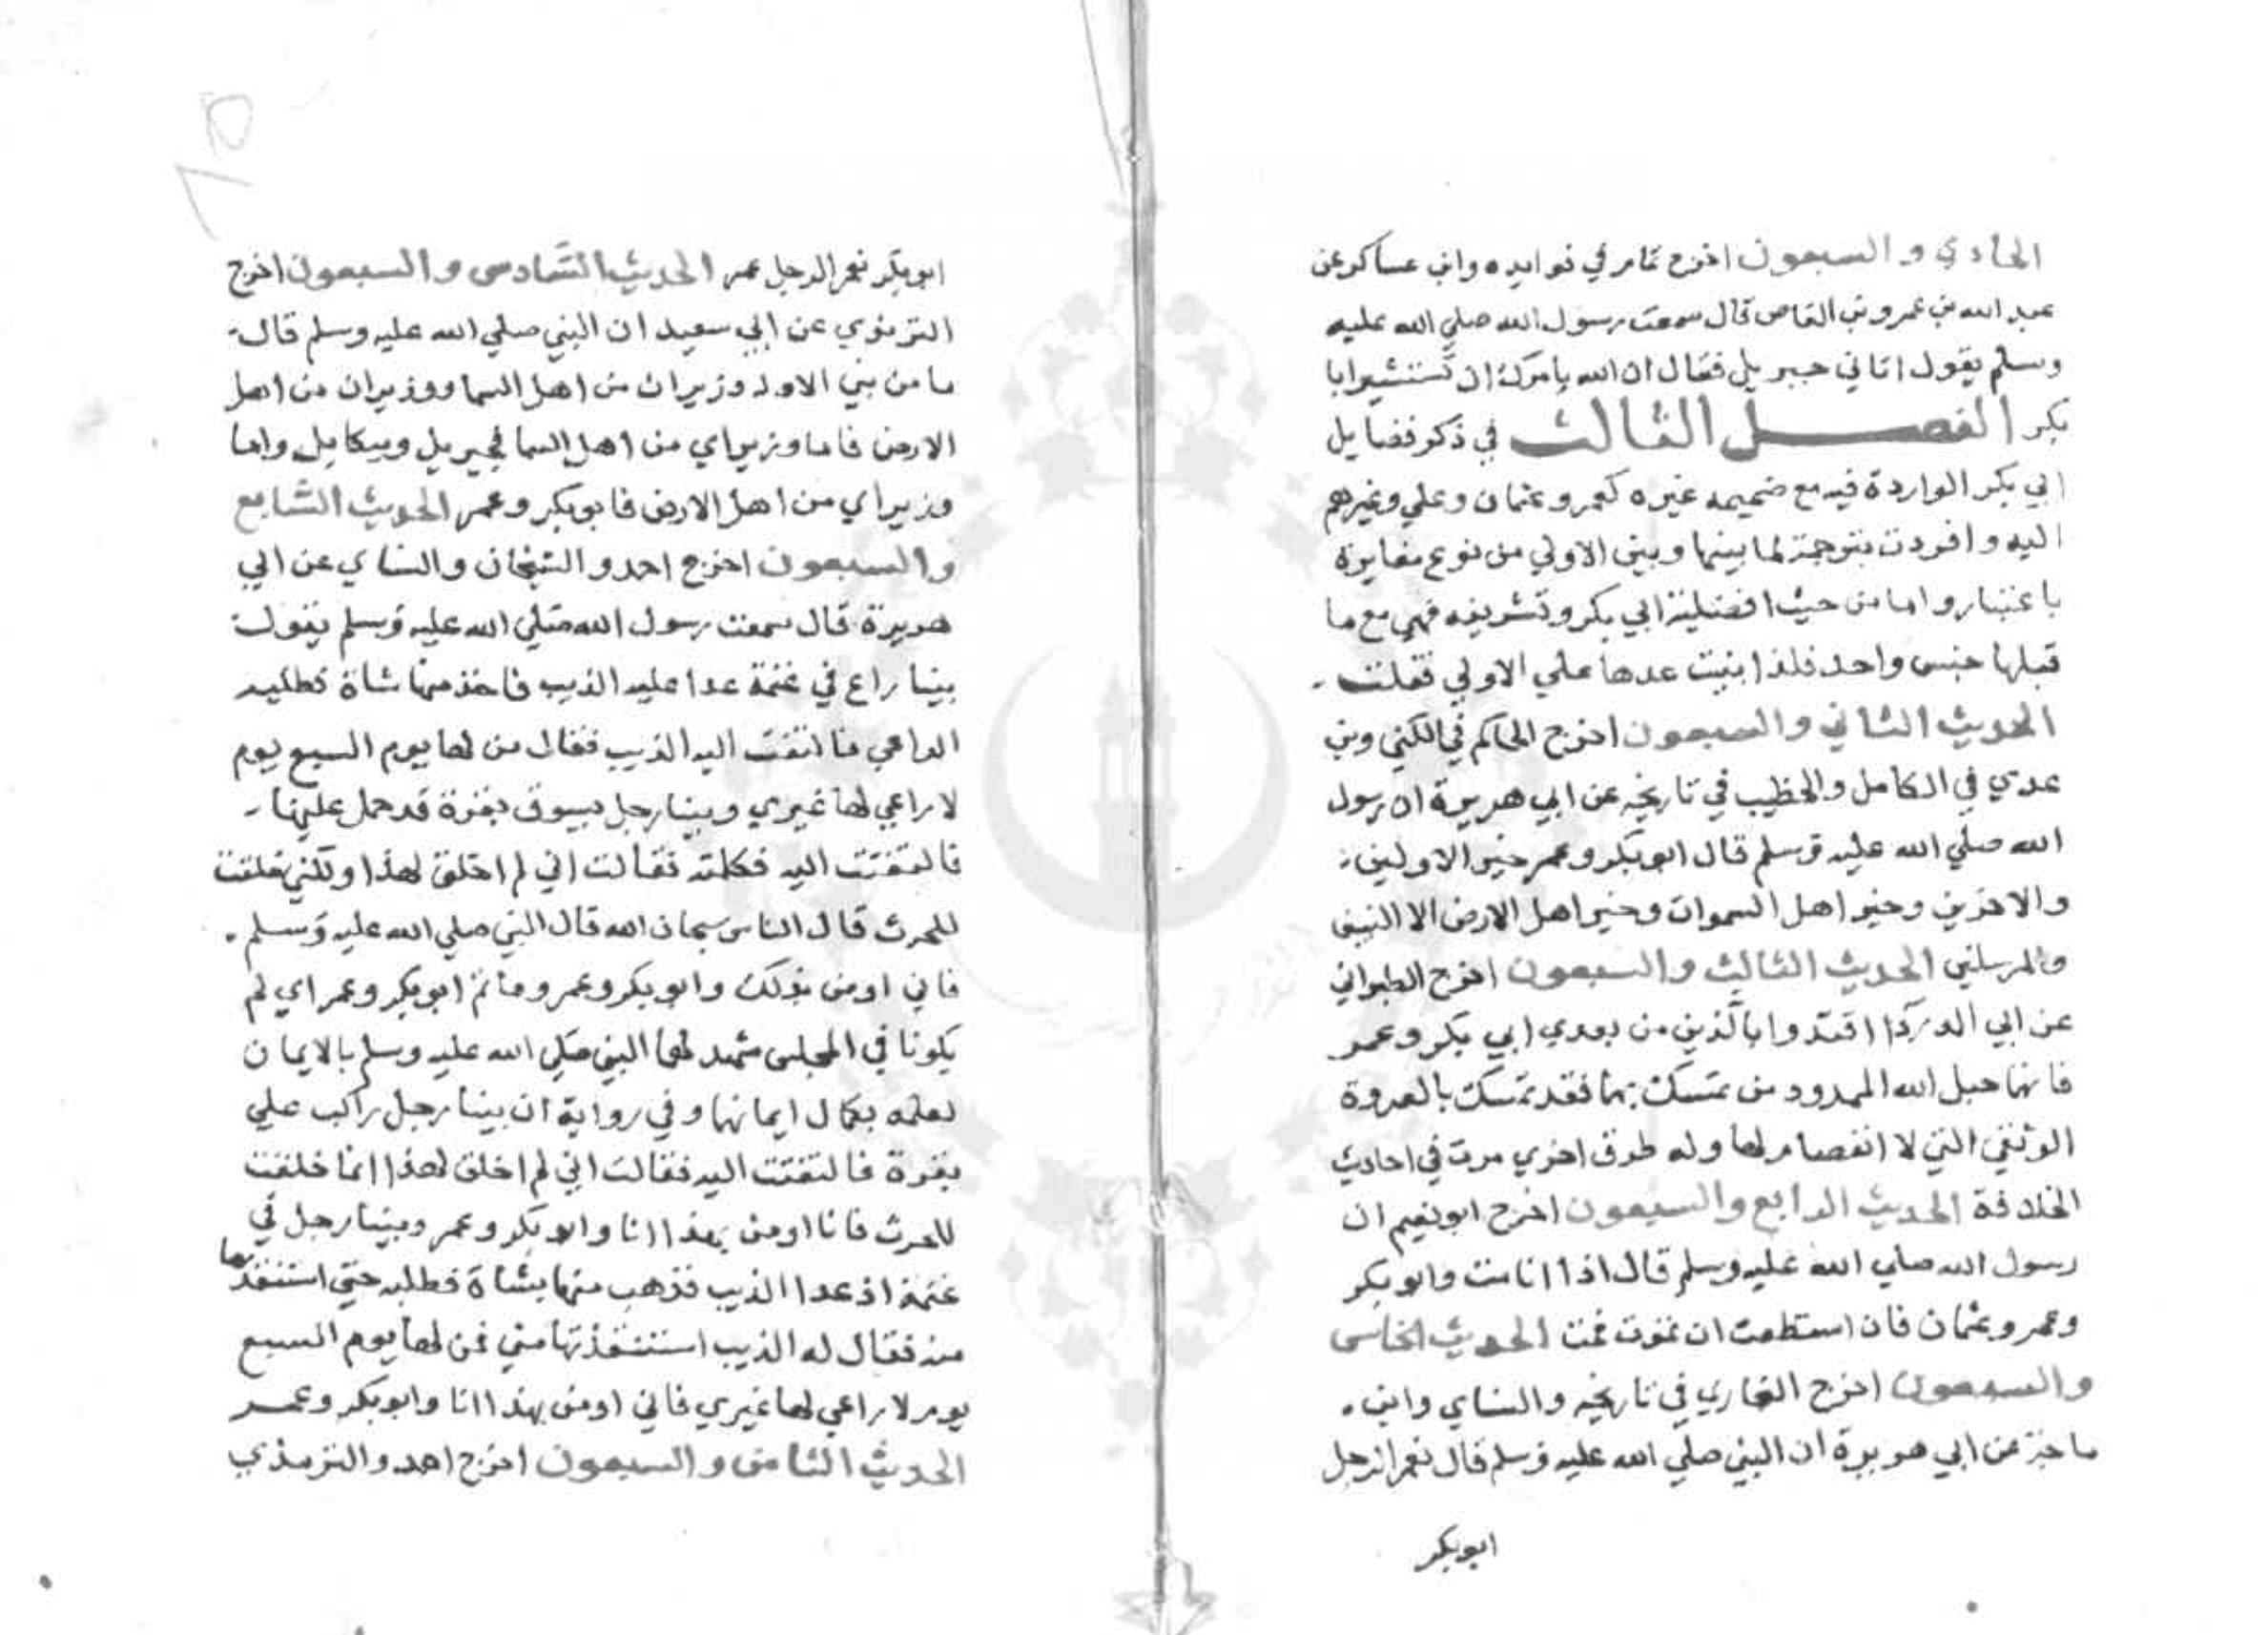 الحادي والسبعون اخرج تمام في فوايده وابن عساكر عن
عبد الله بن عمرو بن العاص قال سمعت رسول الله صلي الله عليه
وسلم يقول اتاني جبريل فقال ان الله يامرك ان تستشير ابا
بكر الفصل الثالث في ذكر فضايل
ابي بكر الواردة فيه مع ضميمه غيره كعمر وعثمان وعلي وغيرهم
اليه وافردت بترجمة لما بينها وبين الاولي من نوع مغايرة
باعتبار واما من حيث افضلية ابي بكر وتشريفه فهي مع ما
قبلها جنس واحد فلذا بنيت عدها علي الاولي فقلت
الحديث الثاني والسبعون اخرج الحاكم في الكني وبن
عدي في الكامل والخطيب في تاريخه عن ابي هريرة ان رسول
الله صلي الله عليه وسلم قال ابو بكر وعمر خير الاولين
والاخرين وخير اهل السموات وخير اهل الارض الا النبين
والمرسلين الحديث الثالث والسبعون اخرج الطبراني
عن ابي الدردا اقتدوا بالذين من بعدي ابي بكر وعمر
فانهما حبل الله الممدود من تمسك بهما فقد تمسك بالعروة
الوثقي التي لا انفصام لها وله طرق اخري مرت في احاديث
الخلافة الحديث الرابع والسبعون اخرج ابو نعيم ان
رسول الله صلي الله عليه وسلم قال اذا انا مت وابو بكر
وعمر وعثمان فان استطعت ان تموت فمت الحديث الخامس
والسبعون اخرج البخاري في تاريخه والنساي وابن
ماجة عن ابي هريرة ان النبي صلي الله عليه وسلم قال نعم الرجل
ابو بكر
ابو بكر نعم الرجل عمر الحديث السادس والسبعون اخرج
الترمذي عن ابي سعيد ان النبي صلي الله عليه وسلم قال
ما من نبي الا وله وزيران من اهل السما ووزيران من اهل
الارض فاما وزيراي من اهل السما فجبريل وميكايل واما
وزيراي من اهل الارض فابو بكر وعمر الحديث السابع
والسبعون اخرج احمد والشيخان والنساي عن ابي
هريرة قال سمعت رسول الله صلي الله عليه وسلم يقول
بينما راع في غنمة عدا عليه الذيب فاخذ منها شاة فطلبه
الراعي فالتفت اليه الذيب فقال من لها يوم السبع يوم
لا راعي لها غيري وبينما رجل يسوق بقرة قد حمل عليها
فالتفتت اليه فكلمته فقالت اني لم اخلق لهذا ولكني خلقت
للحرث قال الناس سبحان الله قال النبي صلي الله عليه وسلم
فاني اومن بذلك وابو بكر وعمر وما ثم ابو بكر وعمر اي لم
يكونا في المجلس شهد لهما النبي صلي الله عليه وسلم بالايمان
لعلمه بكمال ايمانهما وفي رواية ان بينما رجل راكب علي
بقرة فالتفتت اليه فقالت اني لم اخلق لهذا انما خلقت
للحرث فانا اومن بهذا انا وابو بكر وعمر وبينما رجل في
غنمه اذ عدا الذيب فذهب منها بشاة فطلبه حتي استنقذها
منه فقال له الذيب استنقذتها مني فمن لها يوم السبع
يوم لا راعي لها غيري فاني اومن بهذا انا وابو بكر وعمر
الحديث الثامن والسبعون اخرج احمد والترمذي